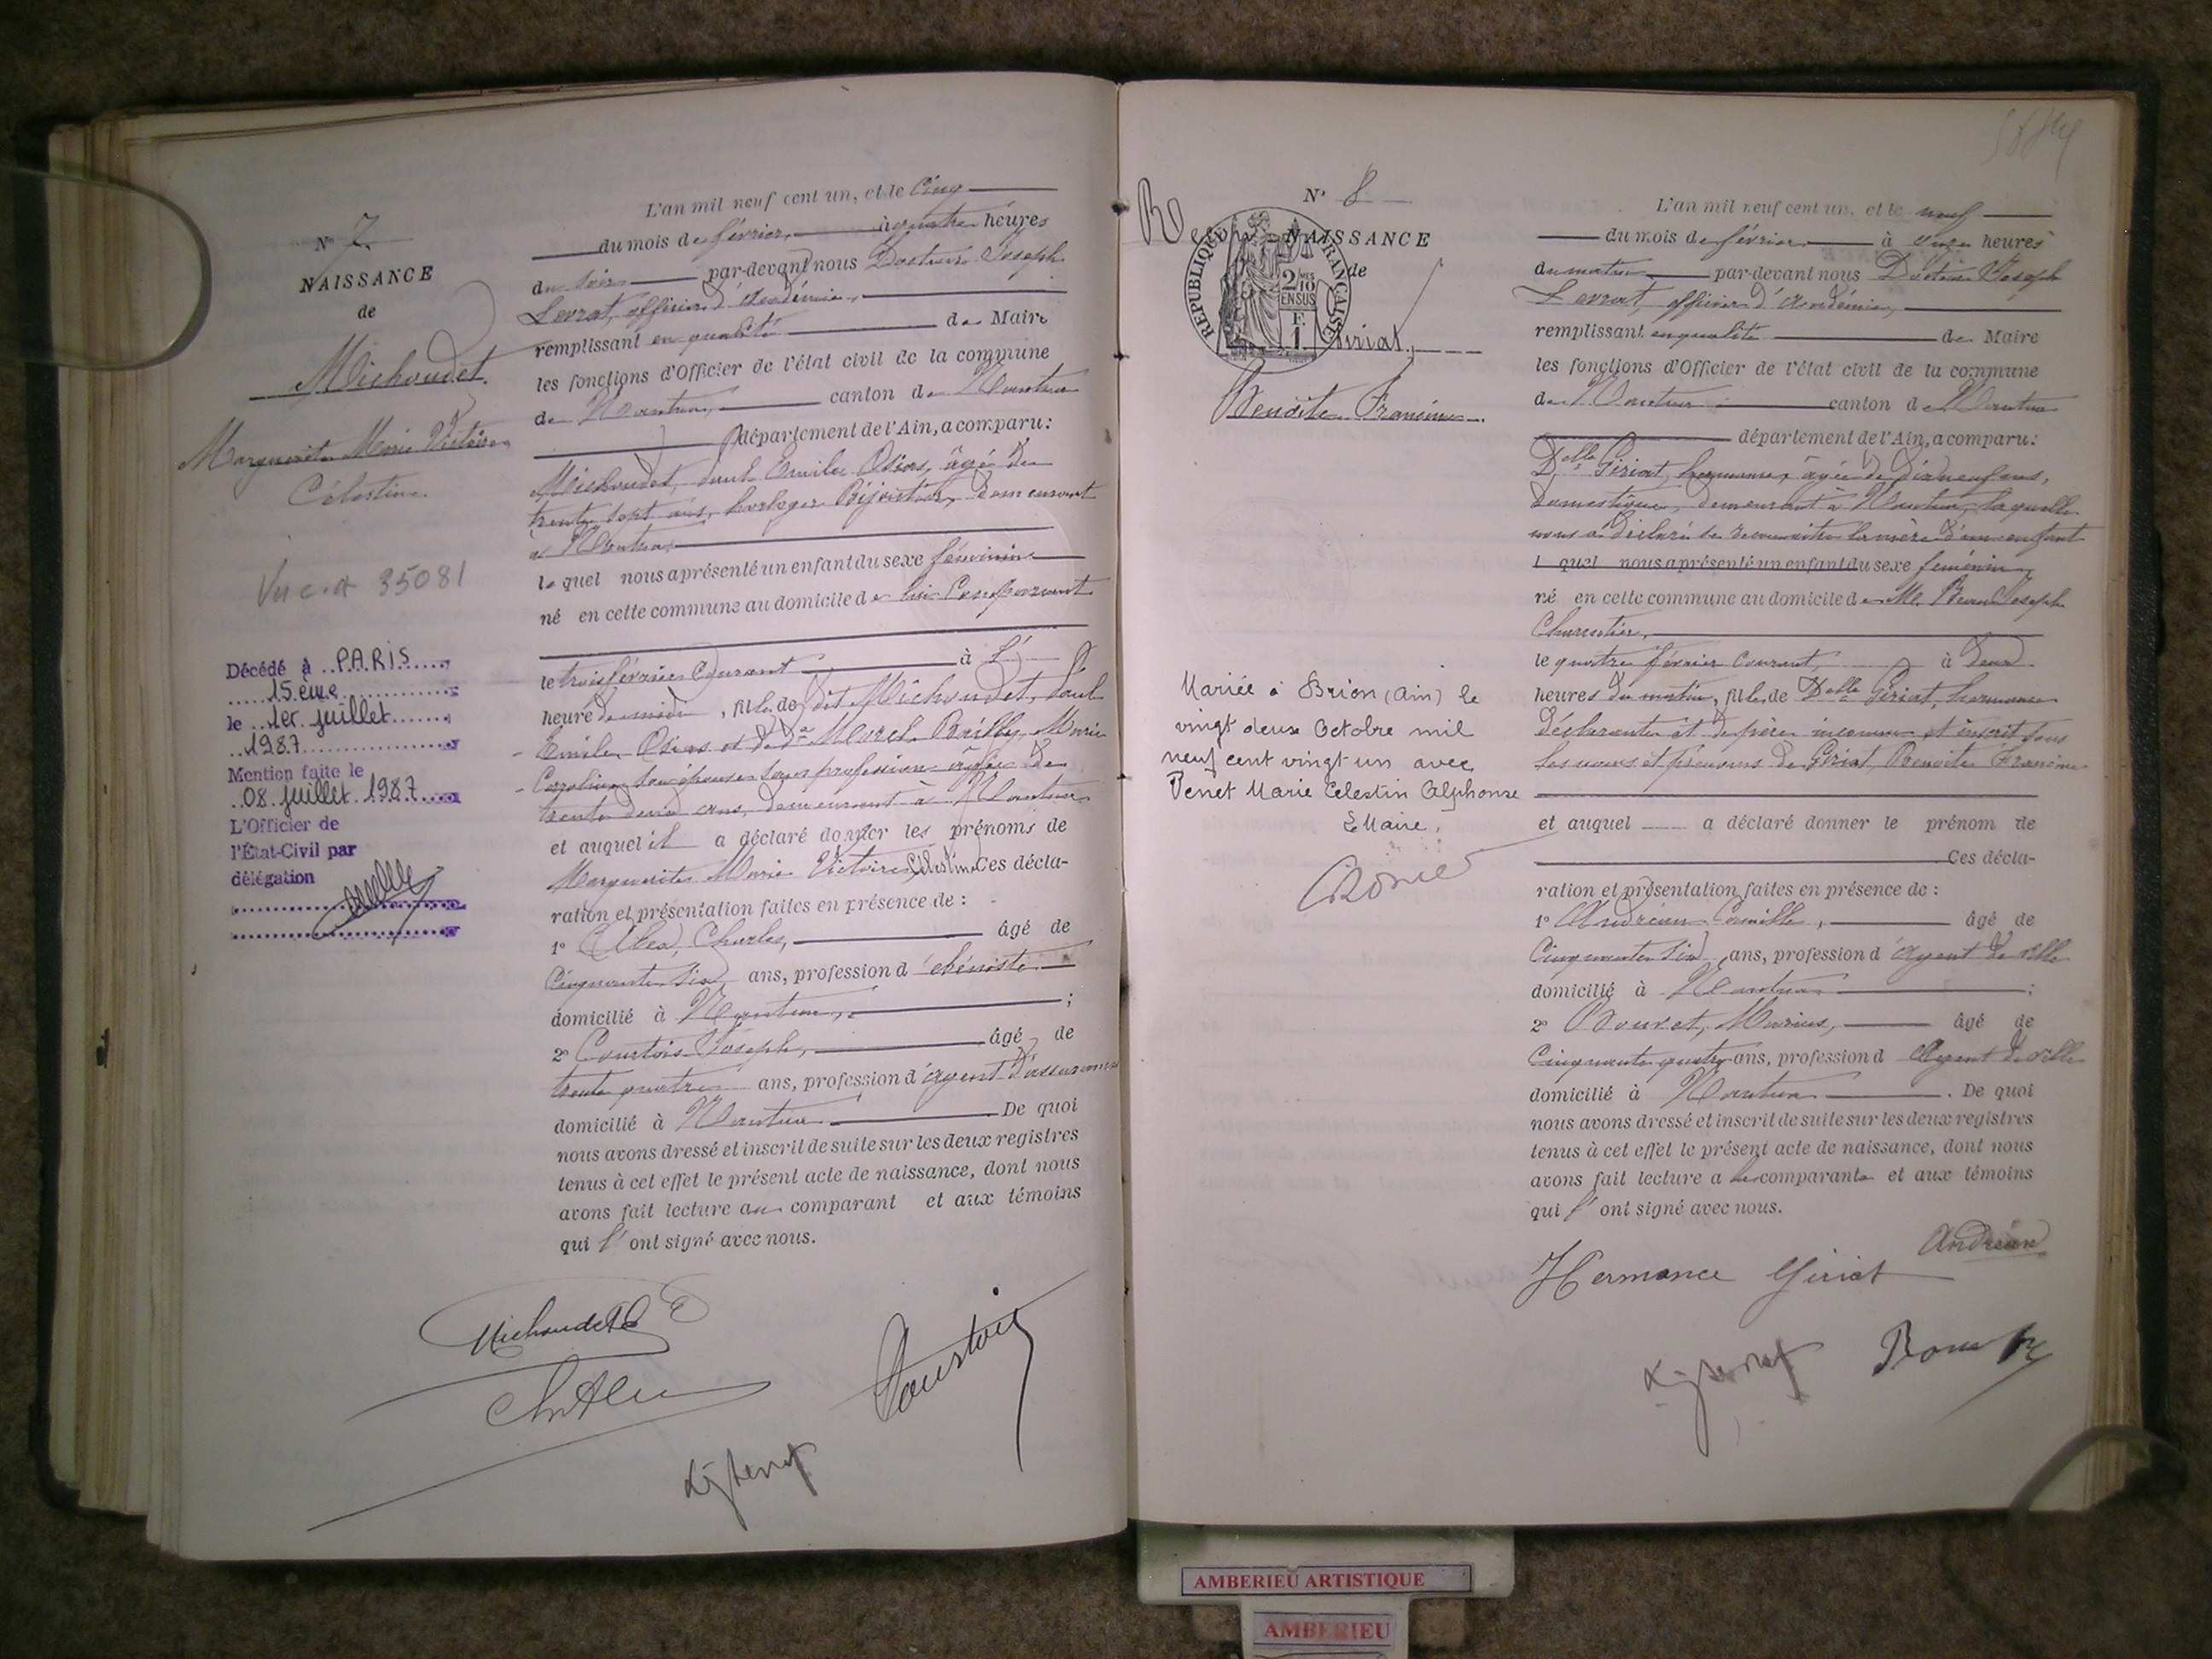 N° 7.
NAISSANCE
de
Michoudet
Marguerite Marie Victoire
Célestine.
35081
Décédé à PARIS
15ème
le 1er juillet
1987
Mention faite le
08 juillet 1987
L'Officier de
l'État-Civil par
délégation
L'an mil neuf cent un, et le Cinq
du mois de février, à quatre heures
du soir par-devant nous Docteur Joseph
Levrat, officier d'Académie,
remplissant en qualité de Maire
les fonctions d'Officier de l'état civil de la commune
de Nantua, canton de Nantua
département de l'Ain, a comparu:
Michoudet, Paul Emile Osias, âgé de
trente sept ans, horloger Bijoutier, demeurant
à Nantua,
lequel nous a présenté un enfant du sexe féminin
né en cette commune au domicile de lui Comparant
le trois février Courant à l'
heure de midi, fille de dit Michoudet, Paul
Emile Osias et de De Morel Marie
Caroline son épouse sans profession âgée de
trente deux ans, demeurant à Nantua
et auquel il a déclaré donner les prénoms de
Marguerite Marie Victoire Célestine Ces décla-
ration et présentation faites en présence de :
1° Charles, âgé de
Cinquante six ans, profession d'ébéniste
domicilié à Nantua, ;
2° Courtois Joseph, âgé de
trente quatre ans, profession d'agent d'assurances
domicilié à Nantua De quoi
nous avons dressé et inscrit de suite sur les deux registres
tenus à cet effet le présent acte de naissance, dont nous
avons fait lecture au comparant et aux témoins
qui l'ont signé avec nous.
Michoudet
Courtois
N° 8
NAISSANCE
de
REPUBLIQUE FRANÇAISE
2/10 EN SUS
F. 1
Giriat,
Benoite Francine.
Mariée à Brion (Ain) le
vingt deux Octobre mil
neuf cent vingt-un avec
Venet Marie Celestin Alphonse
Le Maire,
L'an mil neuf cent un, et le neuf
du mois de février à onze heures
du matin par-devant nous Docteur Joseph
Levrat, officier d'Académie,
remplissant en qualité de Maire
les fonctions d'Officier de l'état civil de la commune
de Nantua canton de Nantua
département de l'Ain, a comparu:
Delle Giriat, hermance, âgée de dix neuf ans,
Domestique, demeurant à Nantua, laquelle
nous a déclaré se reconnaître la mère d'un enfant
l quel nous a présenté un enfant du sexe féminin,
né en cette commune au domicile de Mr Joseph
Charcutier,
le quatre février Courant, à deux
heures du matin, fille de Delle Giriat, hermance
déclarante et de père inconnu et inscrit sous
les noms et prénoms de Giriat, Benoite Francine
et auquel a déclaré donner le prénom de
Ces décla-
ration et présentation faites en présence de :
1° Andréan Camille, âgé de
Cinquante six ans, profession d'agent de ville
domicilié à Nantua ;
2° Bouvet, Marius, âgé de
Cinquante quatre ans, profession d'Agent de ville
domicilié à Nantua. De quoi
nous avons dressé et inscrit de suite sur les deux registres
tenus à cet effet le présent acte de naissance, dont nous
avons fait lecture a la comparante et aux témoins
qui l'ont signé avec nous.
Andréan
Hermance Giriat
AMBERIEU ARTISTIQUE
AMBERIEU